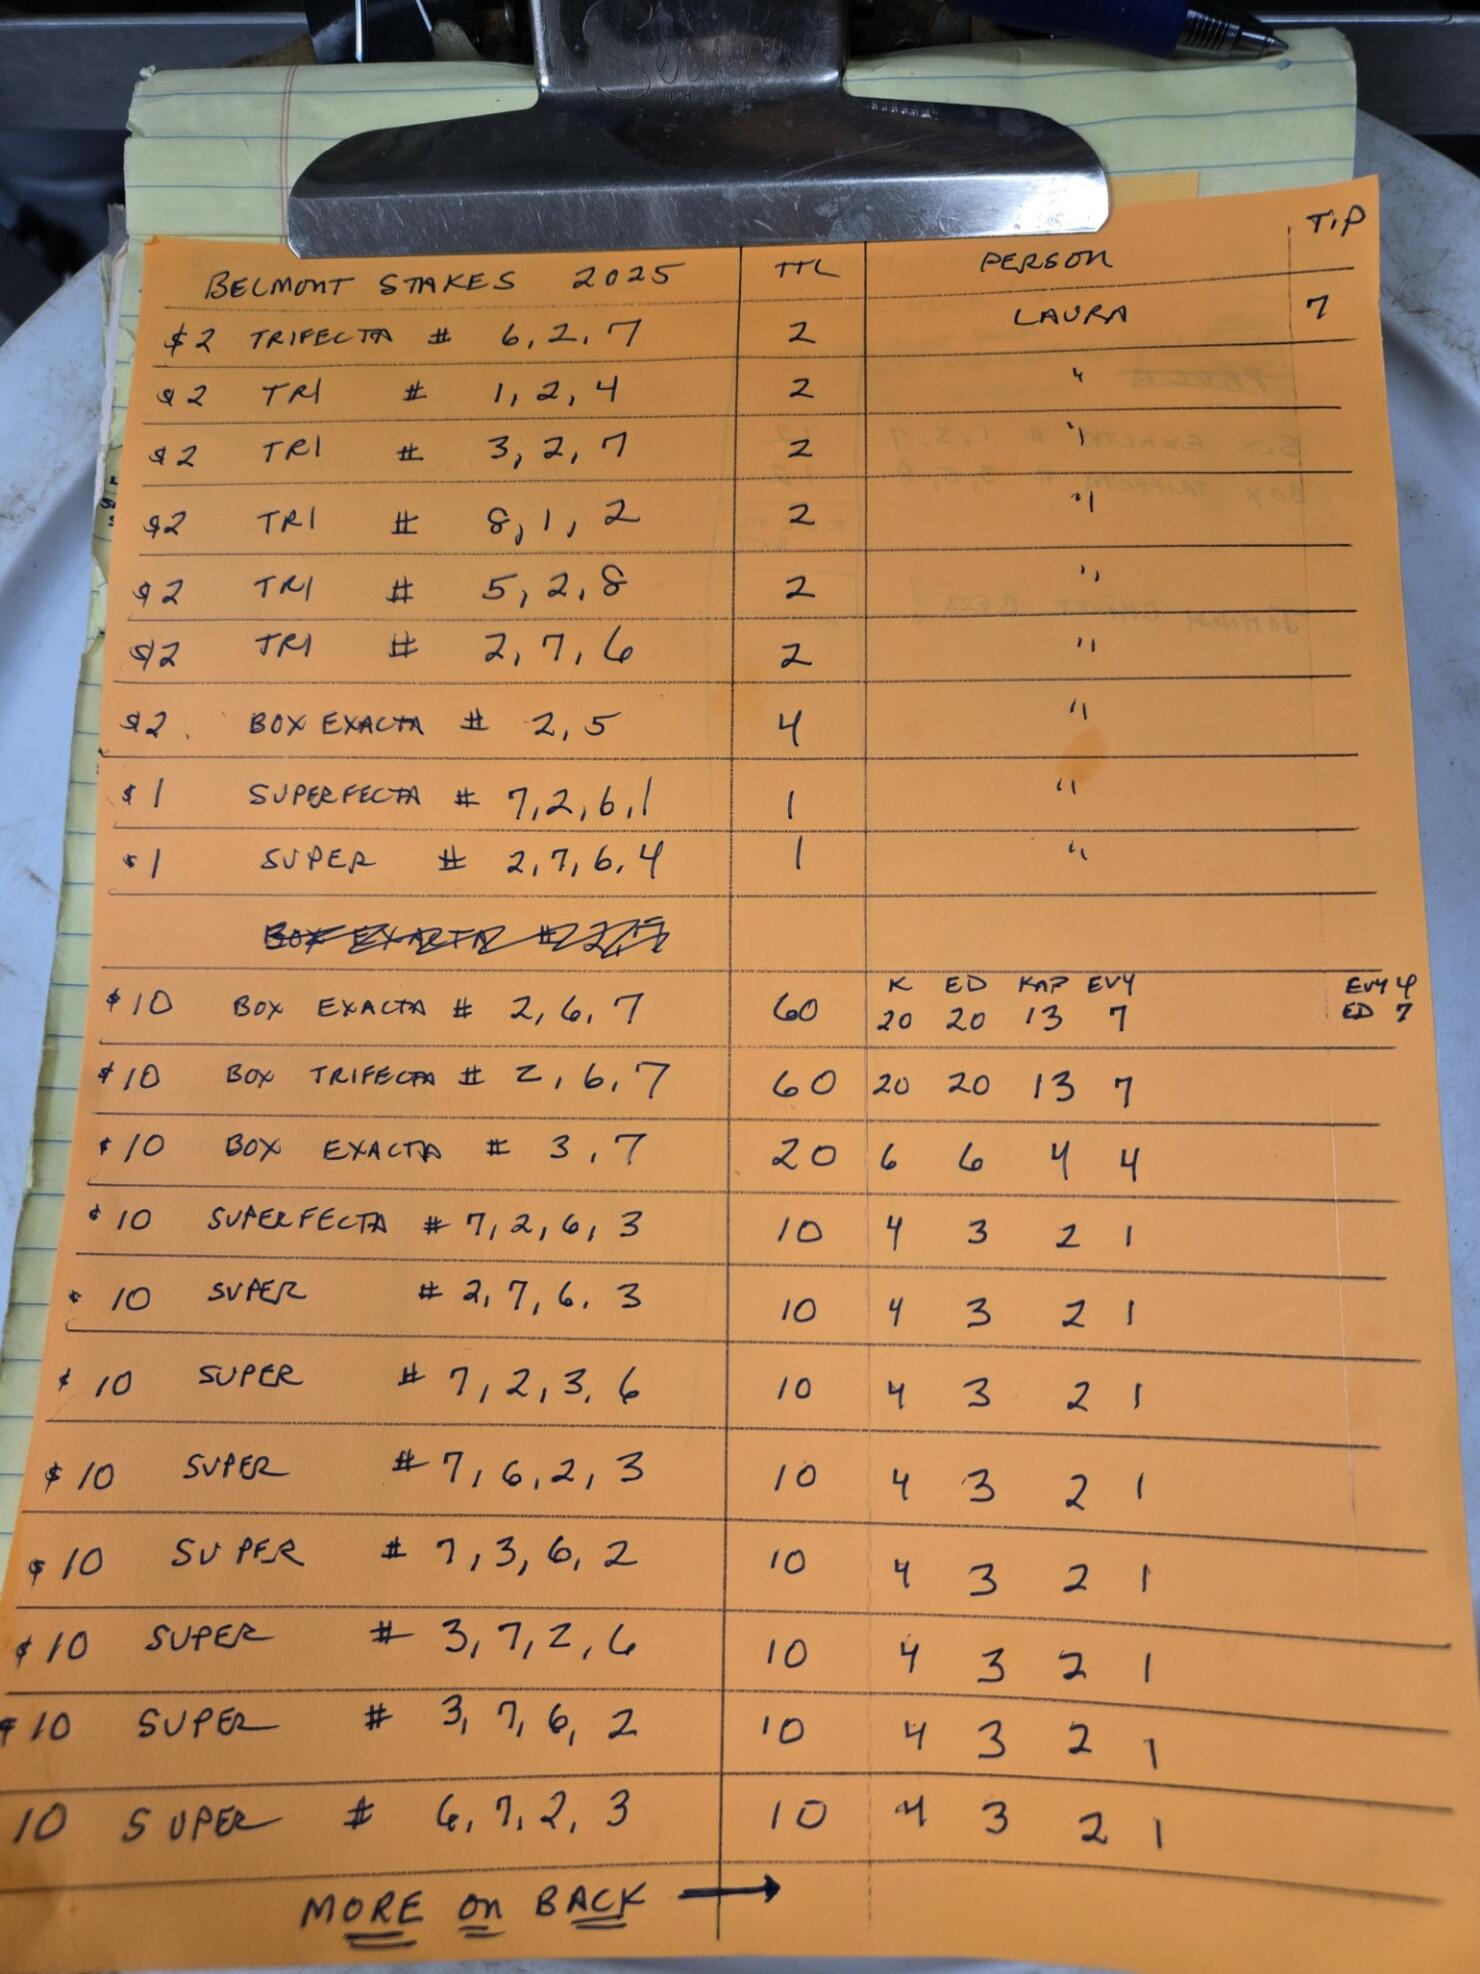 BELMONT STAKES 2025 TTL PERSON TIP
$2 TRIFECTA # 6, 2, 7 2 LAURA 7
$2 TRI # 1, 2, 4 2 "
$2 TRI # 3, 2, 7 2 "
$2 TRI # 8, 1, 2 2 "
$2 TRI # 5, 2, 8 2 "
$2 TRI # 2, 7, 6 2 "
$2. BOX EXACTA # 2, 5 4 "
$1 SUPERFECTA # 7, 2, 6, 1 1 "
$1 SUPER # 2, 7, 6, 4 1 "
BOX EXACTA #
K ED KAP EVY EVY 4
$10 BOX EXACTA # 2, 6, 7 60 20 20 13 7 ED 7
$10 BOX TRIFECTA # 2, 6, 7 60 20 20 13 7
$10 BOX EXACTA # 3, 7 20 6 6 4 4
$10 SUPERFECTA # 7, 2, 6, 3 10 4 3 2 1
$10 SUPER # 2, 7, 6, 3 10 4 3 2 1
$10 SUPER # 7, 2, 3, 6 10 4 3 2 1
$10 SUPER # 7, 6, 2, 3 10 4 3 2 1
$10 SUPER # 7, 3, 6, 2 10 4 3 2 1
$10 SUPER # 3, 7, 2, 6 10 4 3 2 1
$10 SUPER # 3, 7, 6, 2 10 4 3 2 1
10 SUPER # 6, 7, 2, 3 10 4 3 2 1
MORE on BACK →